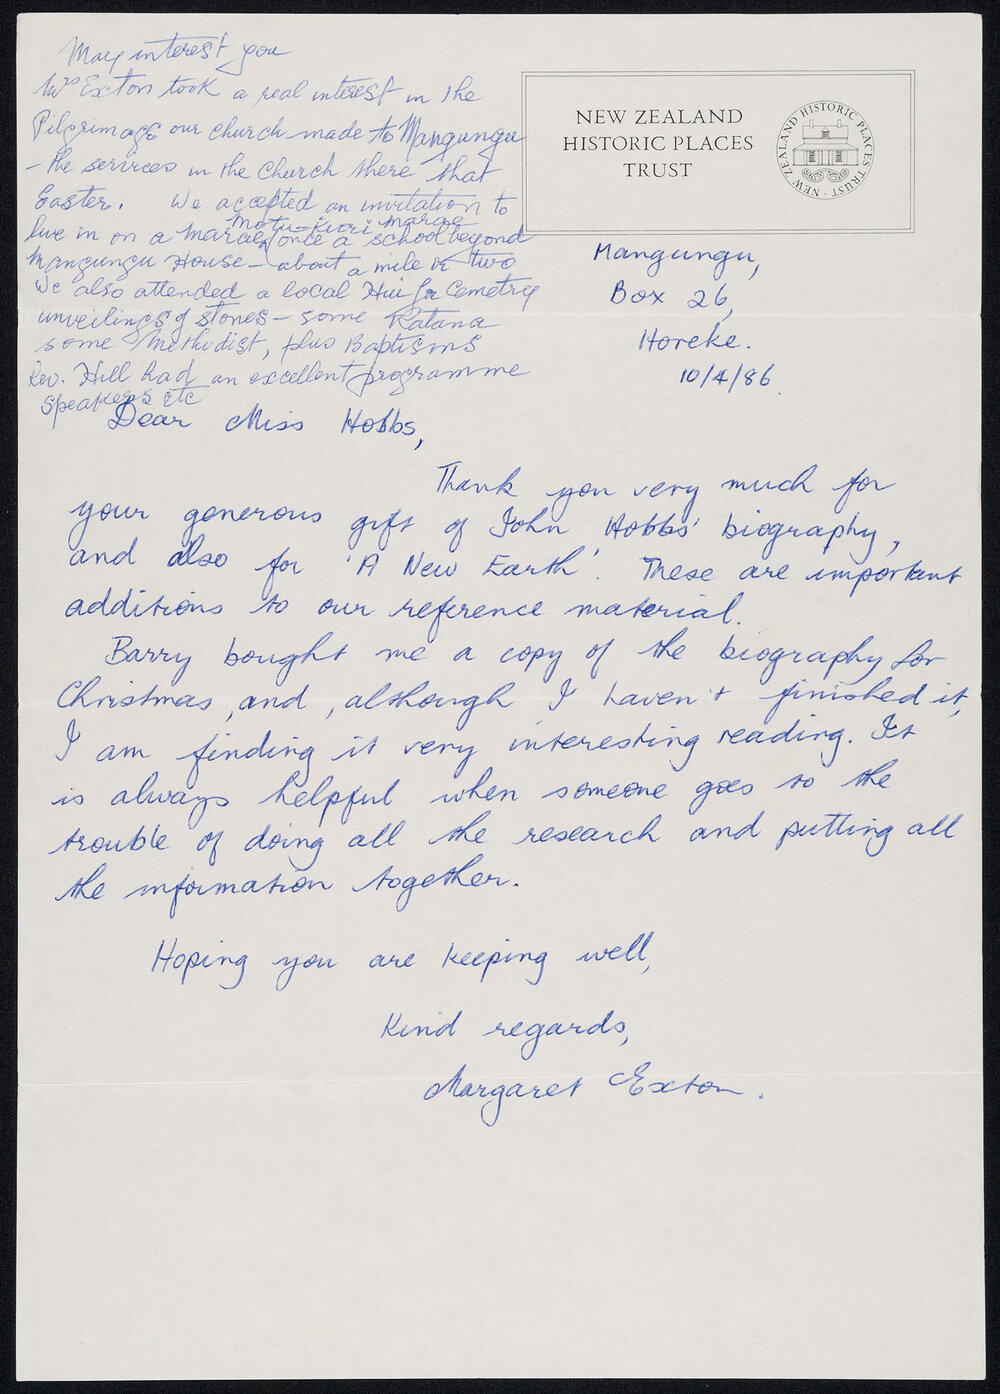 May interest you
Mrs Exton took a real interest in the
Pilgrimage our church made to Mangungu
- the services in the Church there that
Easter. We accepted an invitation to
Motu-Kiori Marae
live in on a marae, once a school beyond
Mangungu House - about a mile or two
We also attended a local Hui for Cemetry
unveilings of stones - some Ratana
some Methodist, plus Baptisms
Rev. Hill had an excellent programme
speakers etc
NEW ZEALAND
HISTORIC PLACES
TRUST
NEW ZEALAND HISTORIC PLACES TRUST
Mangungu,
Box 26,
Horeke.
10/4/86.
Dear Miss Hobbs,
Thank you very much for
your generous gift of John Hobbs' biography,
and also for 'A New Earth'. These are important
additions to our reference material.
Barry bought me a copy of the biography for
Christmas, and, although I haven't finished it,
I am finding it very interesting reading. It
is always helpful when someone goes to the
trouble of doing all the research and putting all
the information together.
Hoping you are keeping well,
Kind regards,
Margaret Exton.